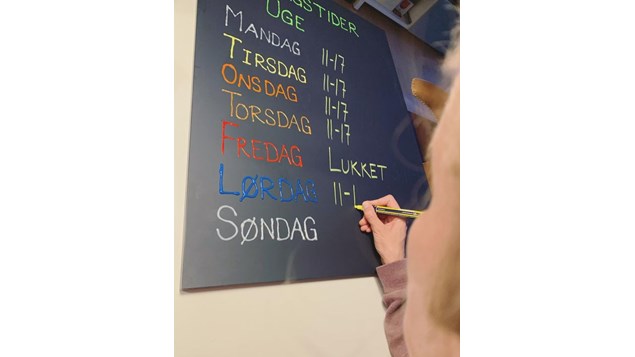 GSTIDER
UGE
MANDAG 11-17
TIRSDAG 11-17
ONSDAG 11-17
TORSDAG 11-17
FREDAG LUKKET
LØRDAG 11-1
SØNDAG